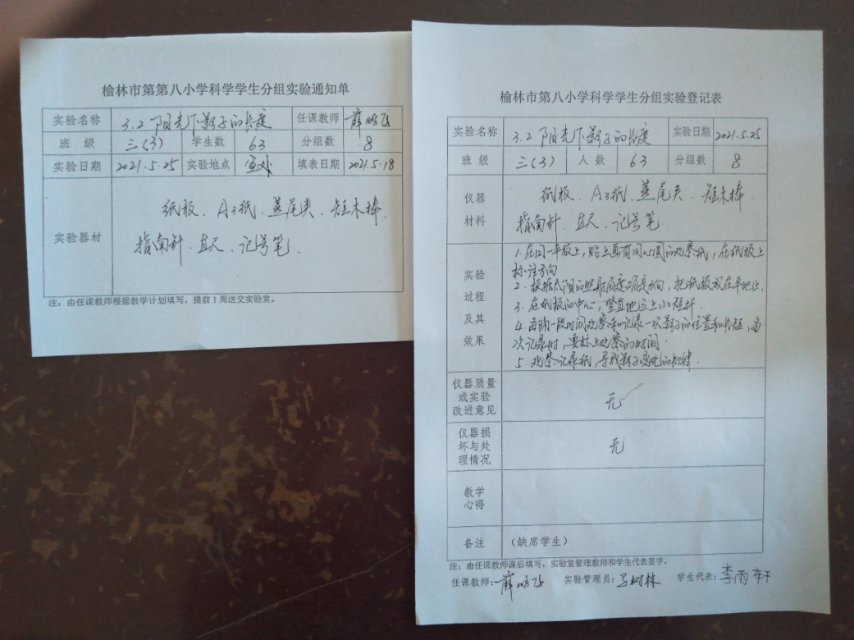 榆林市第第八小学科学学生分组实验通知单
实验名称 3.2 阳光下影子的长度 任课教师 薛
班 级 三(3) 学生数 63 分组数 8
实验日期 2021.5.25 实验地点 室外 填表日期 2021.5.18
实验器材 纸板、A3纸、燕尾夹、短木棒
指南针、直尺、记号笔.
注：由任课教师根据教学计划填写，提前1周送交实验室。
榆林市第八小学科学学生分组实验登记表
实验名称 3.2 阳光下影子的长度 实验日期 2021.5.25
班 级 三(3) 人 数 63 分组数 8
仪器材料 纸板、A3纸、燕尾夹、短木棒
指南针、直尺、记号笔
实验过程及其效果
1.在同一平板上，贴上画有同心圆的观察纸，在纸板上
标注方向
2.根据太阳的照射，把纸板放在平地上.
3.在纸板的中心，竖直地立上小短杆.
4.每隔一段时间观察和记录一次影子的位置和长短，每
次记录时，要标上观察的时间.
5.观察记录纸，寻找影子变化的规律.
仪器质量或实验改进意见 无
仪器损坏与处理情况 无
教学心得
备注 (缺席学生)
注：由任课教师课后填写，实验室管理教师和学生代表签字。
任课教师：薛 实验管理员：马时林 学生代表：李雨轩